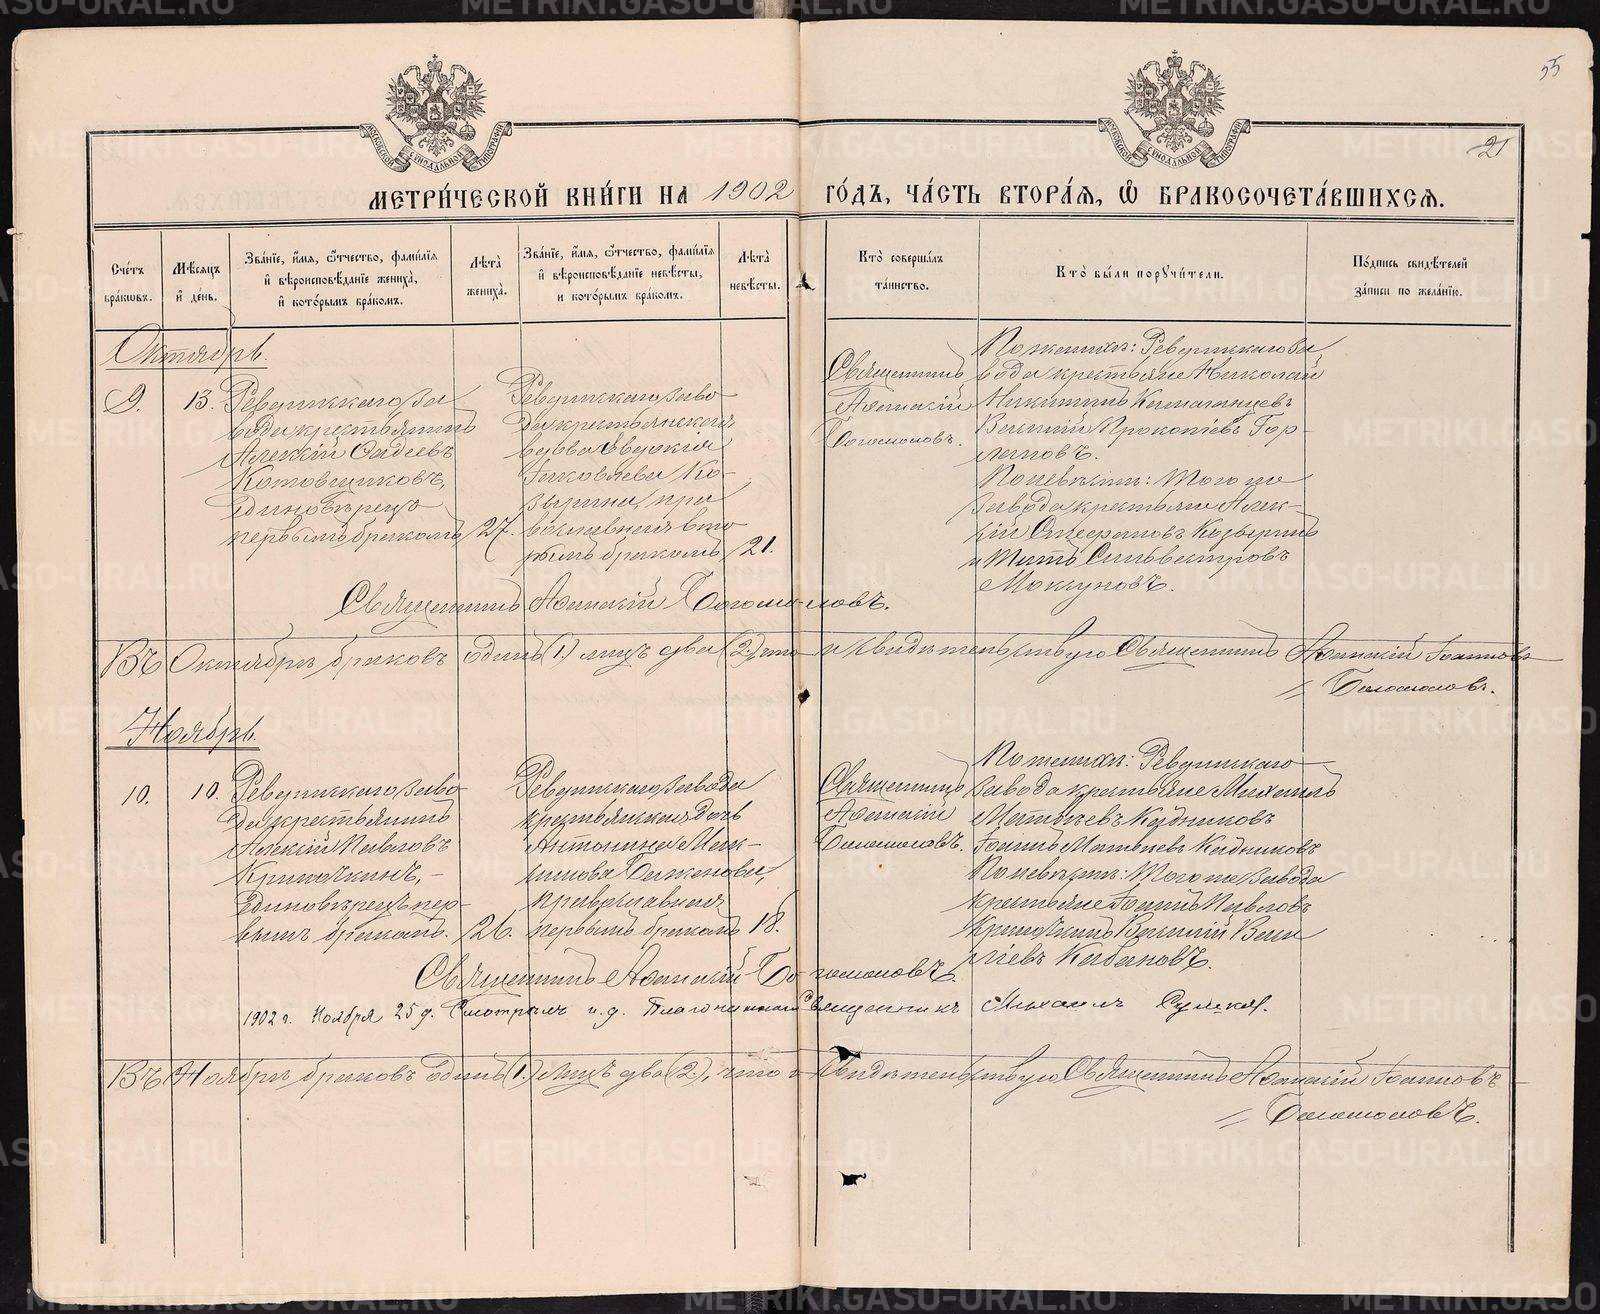 55
21
МОСКОВСКОЙ СѴНОДАЛЬНОЙ ТИПОГРАФІИ
МОСКОВСКОЙ СѴНОДАЛЬНОЙ ТИПОГРАФІИ
МЕТРИ́ЧЕСКОЙ КНИ́ГИ НА 1902 ГО́ДЪ, ЧА́СТЬ ВТОРА́Я, Ѽ БРАКОСОЧЕТА́ВШИХСѦ.
Сче́тъ бра́кѡвъ.
Мѣ́сяцъ и҆ де́нь.
Зва́нїе, и҆́мя, ѻ҆́тчество, фами́лїя и҆ вѣроисповѣ́данїе жениха̀, и҆ кото́рымъ бра́комъ.
Лѣ́та жениха̀.
Зва́нїе, и҆́мя, ѻ҆́тчество, фами́лїя и҆ вѣроисповѣ́данїе невѣ́сты, и кото́рымъ бра́комъ.
Лѣ́та невѣ́сты.
Кто̀ соверша́лъ та́инство.
Кто̀ бы́ли порꙋчи́тели.
По́дпись свидѣ́телей за́писи по жела́нїю.
Октябрь.
9.
13.
Ревдинскаго за
вода крестьянинъ
Алексій Фадеевъ
Котовщиковъ,
единовѣрецъ
первымъ бракомъ
27.
Ревдинскаго заво
да крестьянская
вдова Евдокія
Іаковлева Ко-
зырина, пра
вославная вто
рымъ бракомъ
21.
Священникъ
Аѳанасій
Богомоловъ.
По женихѣ: Ревдинскаго за
вода крестьяне Николай
Никитинъ
Василій Прокопіевъ Гор-
лановъ.
По невѣстѣ: Того же
завода крестьяне Алек-
сій Стефановъ Козыринъ
и Титъ Сильвестровъ
Мокруновъ.
Священникъ Аѳанасій Богомоловъ.
Въ Октябрѣ браковъ одинъ (1.) лицъ два (2.), что и свидѣтельствую Священникъ Аѳанасій Іоанновъ
Богомоловъ.
Ноябрь.
10.
10.
Ревдинскаго заво-
да крестьянинъ
Алексій Павловъ
Криночкинъ, -
единовѣрецъ пер-
вымъ бракомъ.
26.
Ревдинскаго завода
крестьянская дочь
Антонина Мак-
симова Баженова,
православная
первымъ бракомъ
18.
Священникъ
Аѳанасій
Богомоловъ.
По женихѣ: Ревдинскаго
завода крестьяне Михаилъ
Матвѣевъ Кадниковъ
Іоаннъ Матвѣевъ Кадниковъ
По невѣстѣ: Того же завода
крестьяне Іоаннъ Павловъ
Криночкинъ Василій Васи
ліевъ Кабановъ.
Священникъ Аѳанасій Богомоловъ.
1902 г. Ноября 25 д. Смотрѣлъ и. д. Благочиннаго Священникъ Михаилъ
Въ Ноябрѣ браковъ одинъ (1.) лицъ два (2.), что и свидѣтельствую Священникъ Аѳанасій Іоанновъ
Богомоловъ.
METRIKI.GASO-URAL.RU